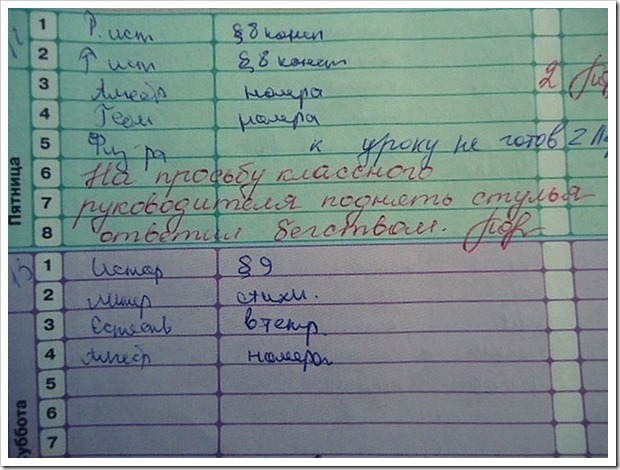 12
1 Р. ист § 8 консп
2 ↑ ист § 8 консп
3 Алгебр номера 2
4 Геом номера
5 Физ-ра к уроку не готов 2
6 На просьбу классного
7 руководителя поднять стулья
8 ответил бегством.
Пятница
13
1 Истор § 9
2 Литер стихи.
3 Естеств в тетр.
4 Алгебр номера
5
6
7
суббота